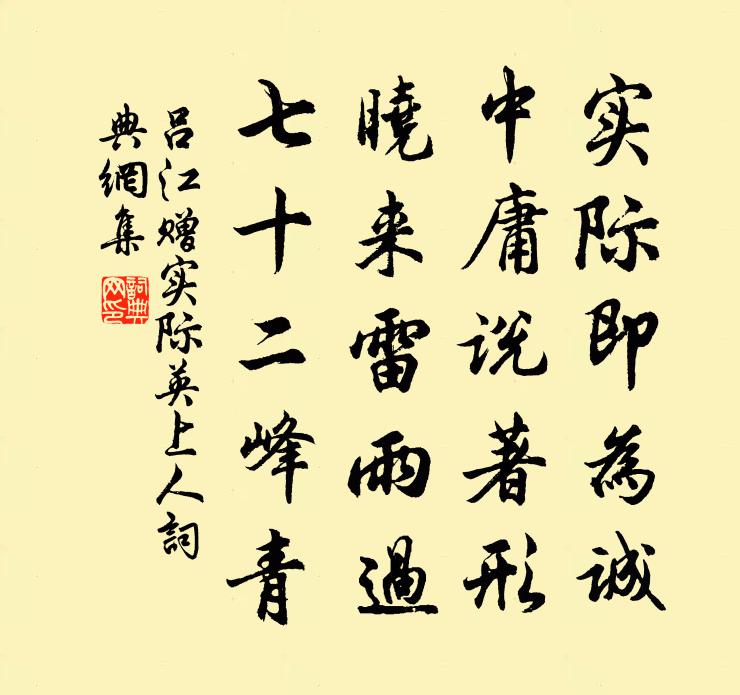 实际即為诚
中庸说著形
曉来雷雨過
七十二峰青
吕江赠实际英上人詞
典網集
詞典
网印